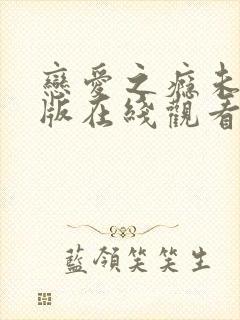 戀愛之癮未
版在綫觀看
藍領笑笑生